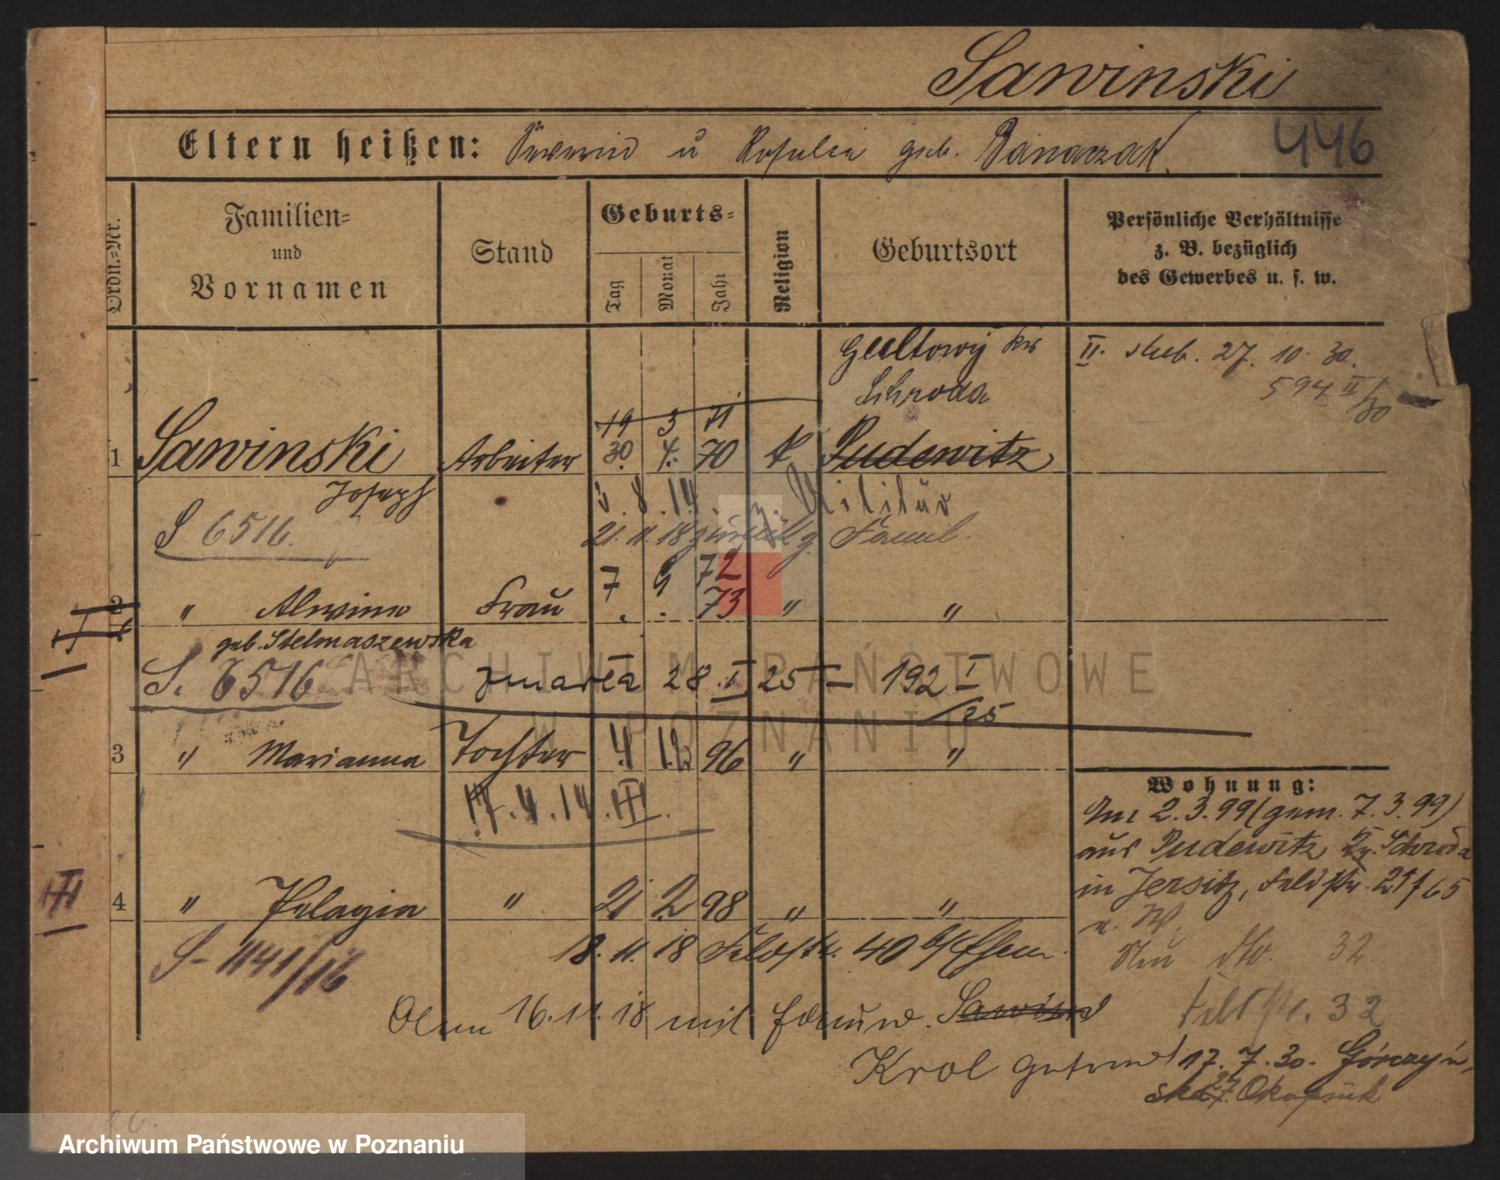 Sawinski
Eltern heißen: Severin u Rosalia geb. Banaczak
446
Ordn.-Nr.
Familien- und Vornamen
Stand
Geburts-
Tag Monat Jahr
Religion
Geburtsort
Persönliche Verhältnisse
z. B. bezüglich
des Gewerbes u. s. w.
Gultowy Krs
Schroda
II. slub. 27. 10. 30.
594 II/30
19 3 71
1 Sawinski Arbeiter 30. 4. 70 k Pudewitz
Joseph
8. 14. z. Militär
S 6516.
21. 11. 18 zurück z Famil.
7 9 72
2 " Alwine Frau 73 " "
geb. Stelmaszewska
S. 6516 zmarła 28. I 25 – 192 I/25
3 " Marianna Tochter 4 12 96 " "
17. 4. 14. III.
Wohnung:
Am 2. 3. 99 (gem. 7. 3. 99)
aus Pudewitz Kr. Schroda
in Jersitz, Feldstr. 21/65
4 " Pelagia " 21 2 98 " "
III
n. W.
18. 11. 18 Feldstr. 40 b/Ehem.
Neu dto. 32
S- 1141/16
16. 11. 18 mit Edmund
Feldstr. 32
Krol getraut
17. 7. 30. Górczyń-
ska 27
Archiwum Państwowe w Poznaniu
ARCHIWUM PAŃSTWOWE
W POZNANIU